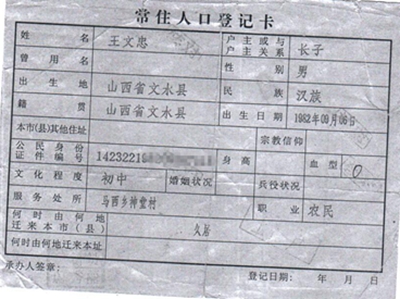 常住人口登记卡
姓名 王文忠 户主或与户主关系 长子
曾用名 性别 男
出生地 山西省文水县 民族 汉族
籍贯 山西省文水县 出生日期 1982年09月06日
本市(县)其他住址 宗教信仰
公民身份证件编号 14232219 身高 血型 O
文化程度 初中 婚姻状况 兵役状况
服务处所 马西乡神堂村 职业 农民
何时由何地迁来本市(县) 久居
何时由何地迁来本址
承办人签章: 登记日期: 年 月 日